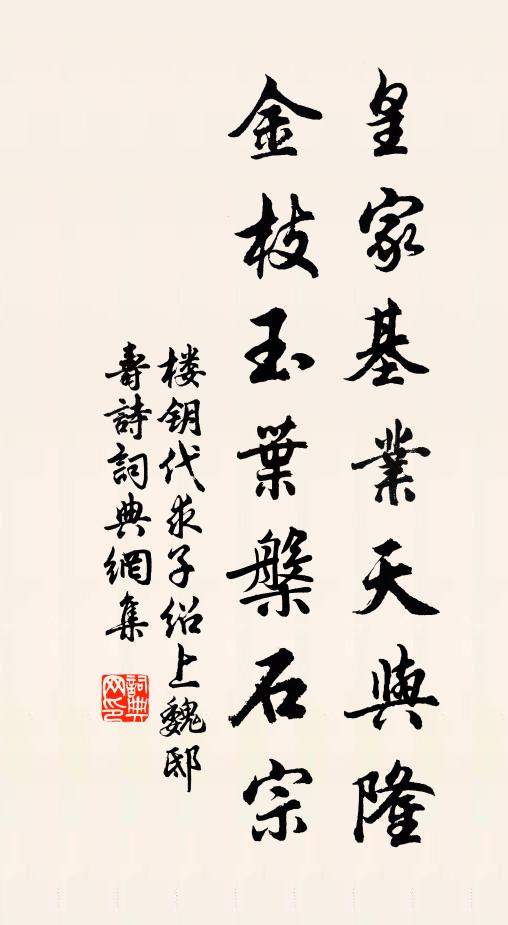 皇家基業天與隆
金枝玉葉槃石宗
楼钥代求子绍上魏邸
壽詩詞典網集
詞典網印